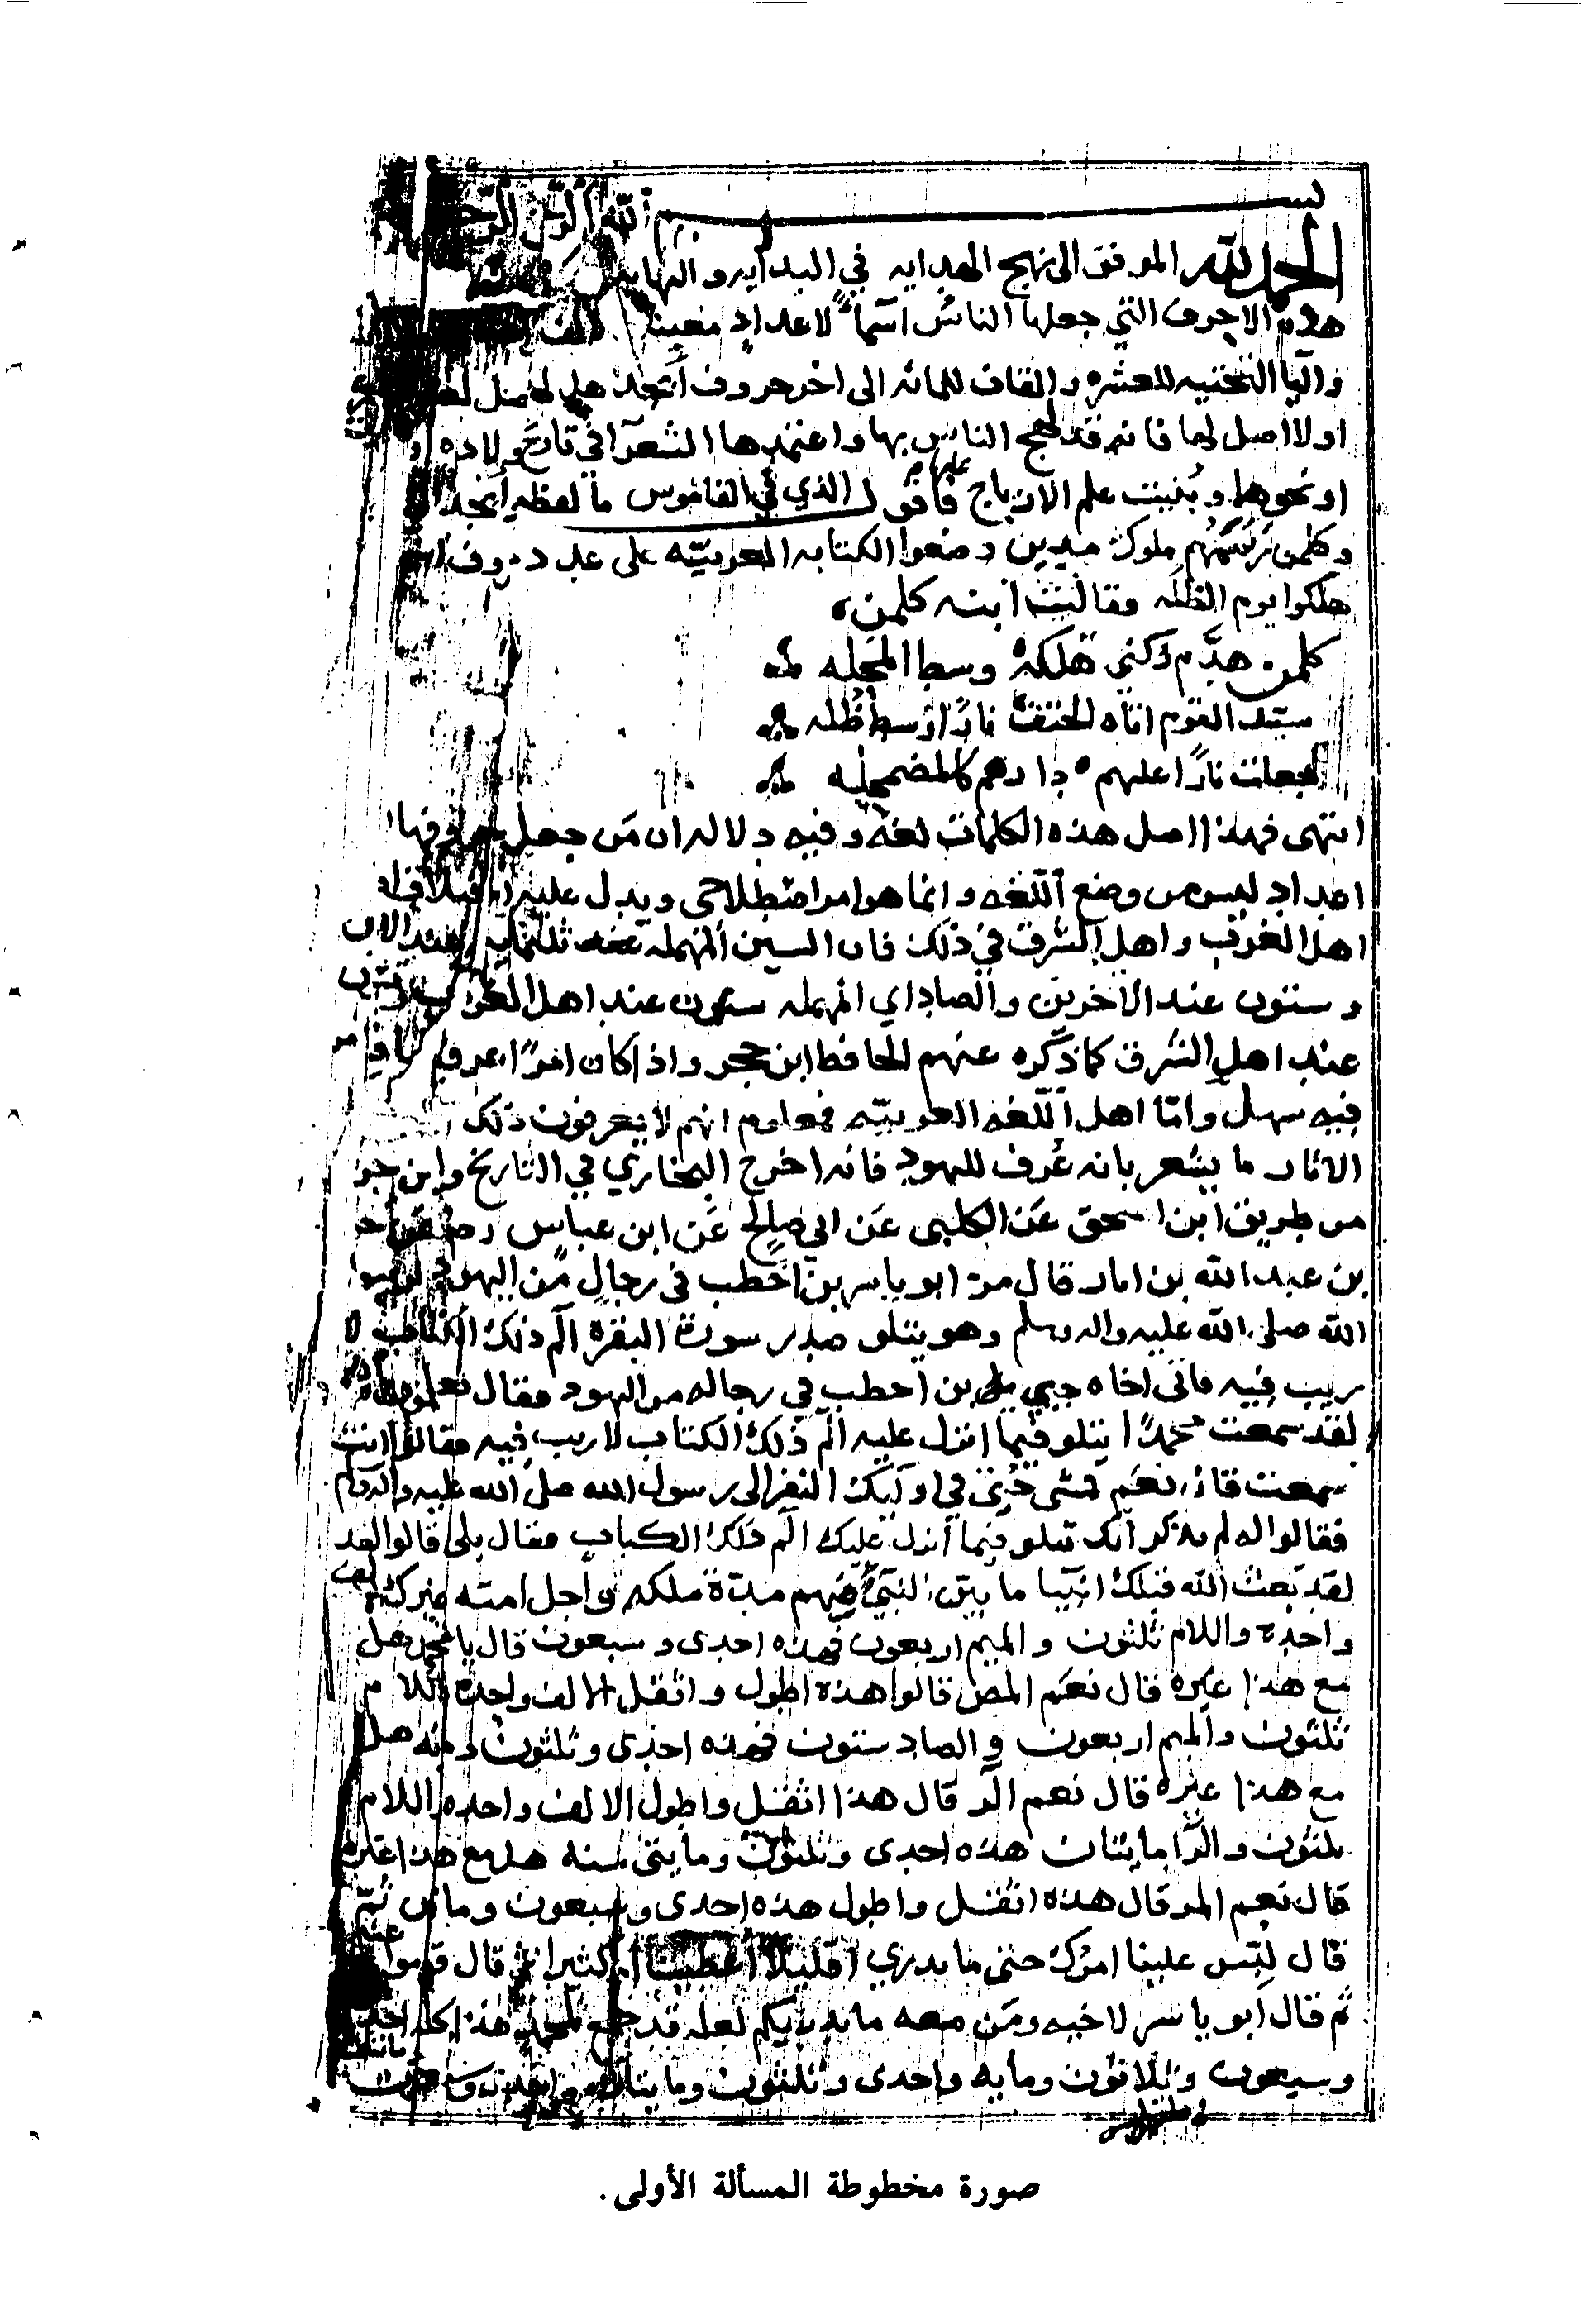 بسم الله الرحمن الرحيم
الحمد لله الموفق الى نهج الهدايه في البدايه والنهايه
هذه الاحرف التي جعلها الناس اسماً لاعداد معينه
واليا التحتيه للعشره والقاف للمائه الى اخر حروف أبجد هل له اصل
او لا اصل لها فانه قد لهج الناس بها واعتمدها الشعرآ في تاريخ ولاده او
او نحوهما وبُنيت علم الازياج عليها فاقول الذي في القاموس ما لفظه ابجد الى
وكلمن رئيسهم ملوك مدين وضعوا الكتابه العربيّه على عدد حروف
هلكوا يوم الظله فقالت ابنه كلمن
كلمن هدّم ركني هلكه وسط المحله
سيّد القوم اتاه الحتف ناراً وسط ظله
جعلت ناراً عليهم دارهم كالمضمحله
انتهى فهذا اصل هذه الكلمات لغه وفيه دلاله ان مَن جعل حروفها
اعداد ليس من وضع اللغه وانما هو امر اصطلاحي ويدل عليه اختلاف
اهل الغرب واهل الشرق في ذلك فان السين المهمله عند ثلثمايه
وستون عند الاخرين والصاد اي المهمله ستون عند اهل الغرب
عند اهل الشرق كما ذكره عنهم الحافظ ابن حجر واذا كان امراً عرفيا
فيه سهل وامّا اهل اللغه العربيّه فمعلوم انهم لا يعرفون ذلك
الاثار ما يشعر بانه عُرف لليهود فانه اخرج البخاري في التاريخ وابن جر
من طريق ابن اسحق عَن الكلبي عَن ابي صالح عَن ابن عباس
بن عبد الله بن قال مر ابو ياسر بن اخطب في رجال من اليهود
الله صلى الله عليه واله وسلم وهو يتلو صدر سورة البقره الم ذلك الكتاب لا
ريب فيه فاتى اخاه حيي بن اخطب في رجاله من اليهود فقال تعلمون
لقد سمعت محمداً يتلو فيما انزل عليه الم ذلك الكتاب لا ريب فيه فقالوا انت
سمعت قال نعم فمشى حُيَيّ في اوليك النفر الى رسول الله صلى الله عليه واله وسلم
فقالوا له لم يذكر انك تتلو فيما انزل عليك الم ذلك الكتاب فقال بلى قالوا لقد
لقد بعث الله قبلك انبيا ما بيّن لنبي منهم مدة ملكه واجل امته غيرك
واحده واللام ثلثون والميم اربعون فهذه احدى وسبعون قال يا محمد هل
مع هذا غيره قال نعم المص قالوا هذه اطول واثقل الالف واحده واللام
ثلثون والميم اربعون والصاد ستون فهذه احدى وثلثون ومئه هل
مع هذا غيره قال نعم الر قال هذا اثقل واطول الالف واحده واللام
ثلثون والرا مايتان هذه احدى وثلثون ومايتى سنه هل مع هذا غيره
قال نعم المر قال هذه اثقل واطول هذه احدى وسبعون ومايتى ثمّ
قال لبّس علينا امرك حتى ما ندري اقليلاً اعطينا ام كثيرا ثم قال قوموا عنه
ثم قال ابو ياسر لاخيه ومَن معه ما يدريكم لعله قد جمع لمحمد هذا كله احدى
وسبعون وثلاثون ومايه واحدى وثلثون ومايتان
صورة مخطوطة المسألة الأولى.